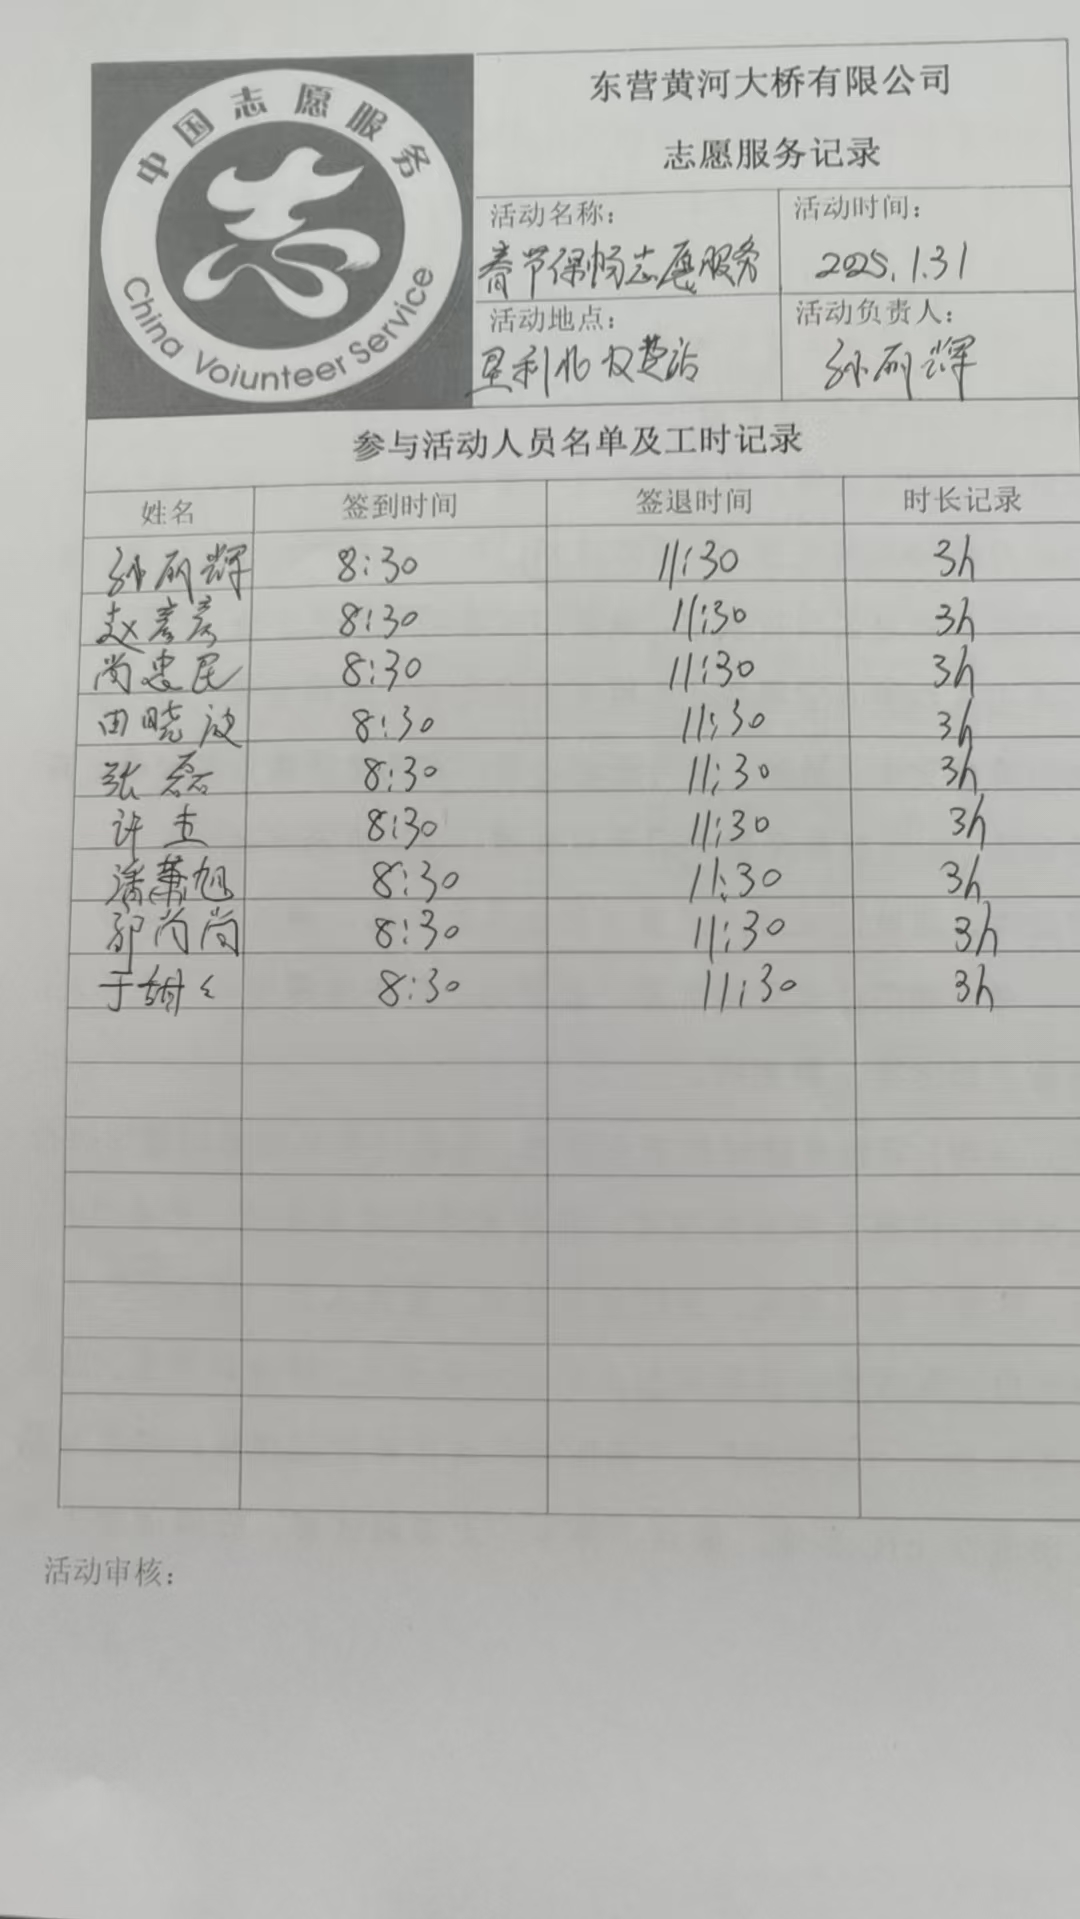 中国志愿服务
志
China Volunteer Service
东营黄河大桥有限公司
志愿服务记录
活动名称: 活动时间:
春节保畅志愿服务 2025.1.31
活动地点: 活动负责人:
垦利北收费站 孙丽辉
参与活动人员名单及工时记录
姓名 签到时间 签退时间 时长记录
孙丽辉 8:30 11:30 3h
赵彦彦 8:30 11:30 3h
尚忠民 8:30 11:30 3h
田晓波 8:30 11:30 3h
张磊 8:30 11:30 3h
许 8:30 11:30 3h
潘萧旭 8:30 11:30 3h
郭尚尚 8:30 11:30 3h
于甜々 8:30 11:30 3h
活动审核: